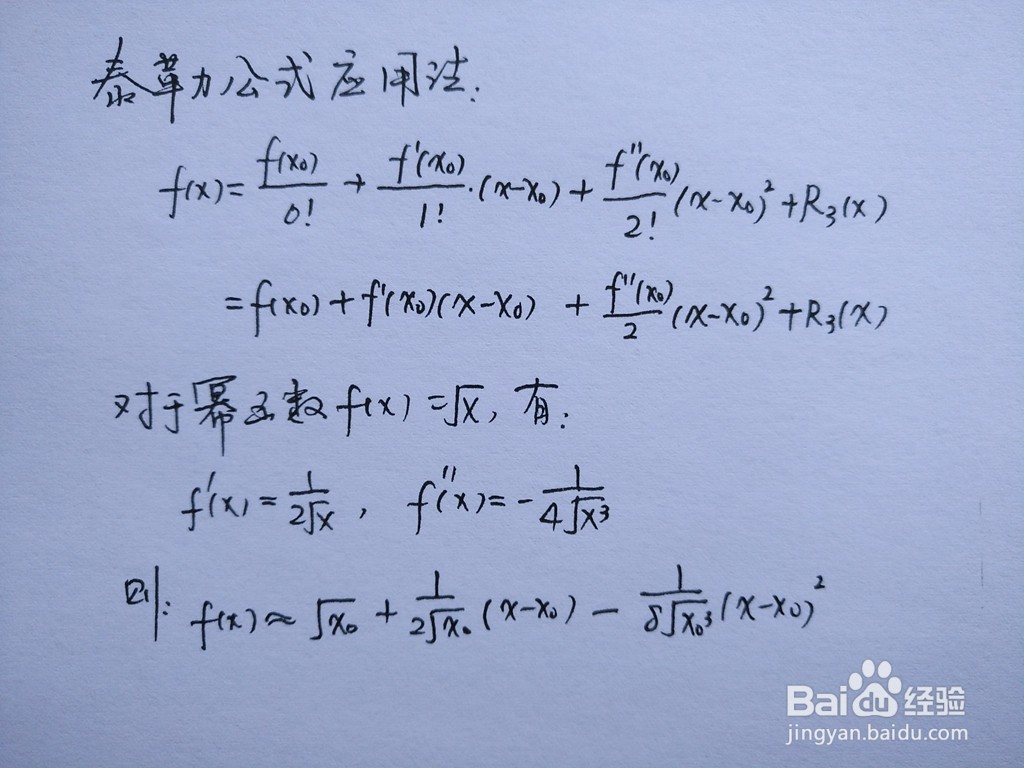 泰革力公式应用法:
f(x)=f(x₀)/0! + f'(x₀)/1!·(x-x₀)+f''(x₀)/2!(x-x₀)²+R₃(x)
=f(x₀)+f'(x₀)(x-x₀) + f''(x₀)/2(x-x₀)²+R₃(x)
对于幂函数f(x)=√x, 有:
f'(x)=1/2√x, f''(x)=-1/4√x³
则: f(x)≈√x₀+1/2√x₀(x-x₀)-1/8√x₀³(x-x₀)²
Baidu经验
jingyan.baidu.com